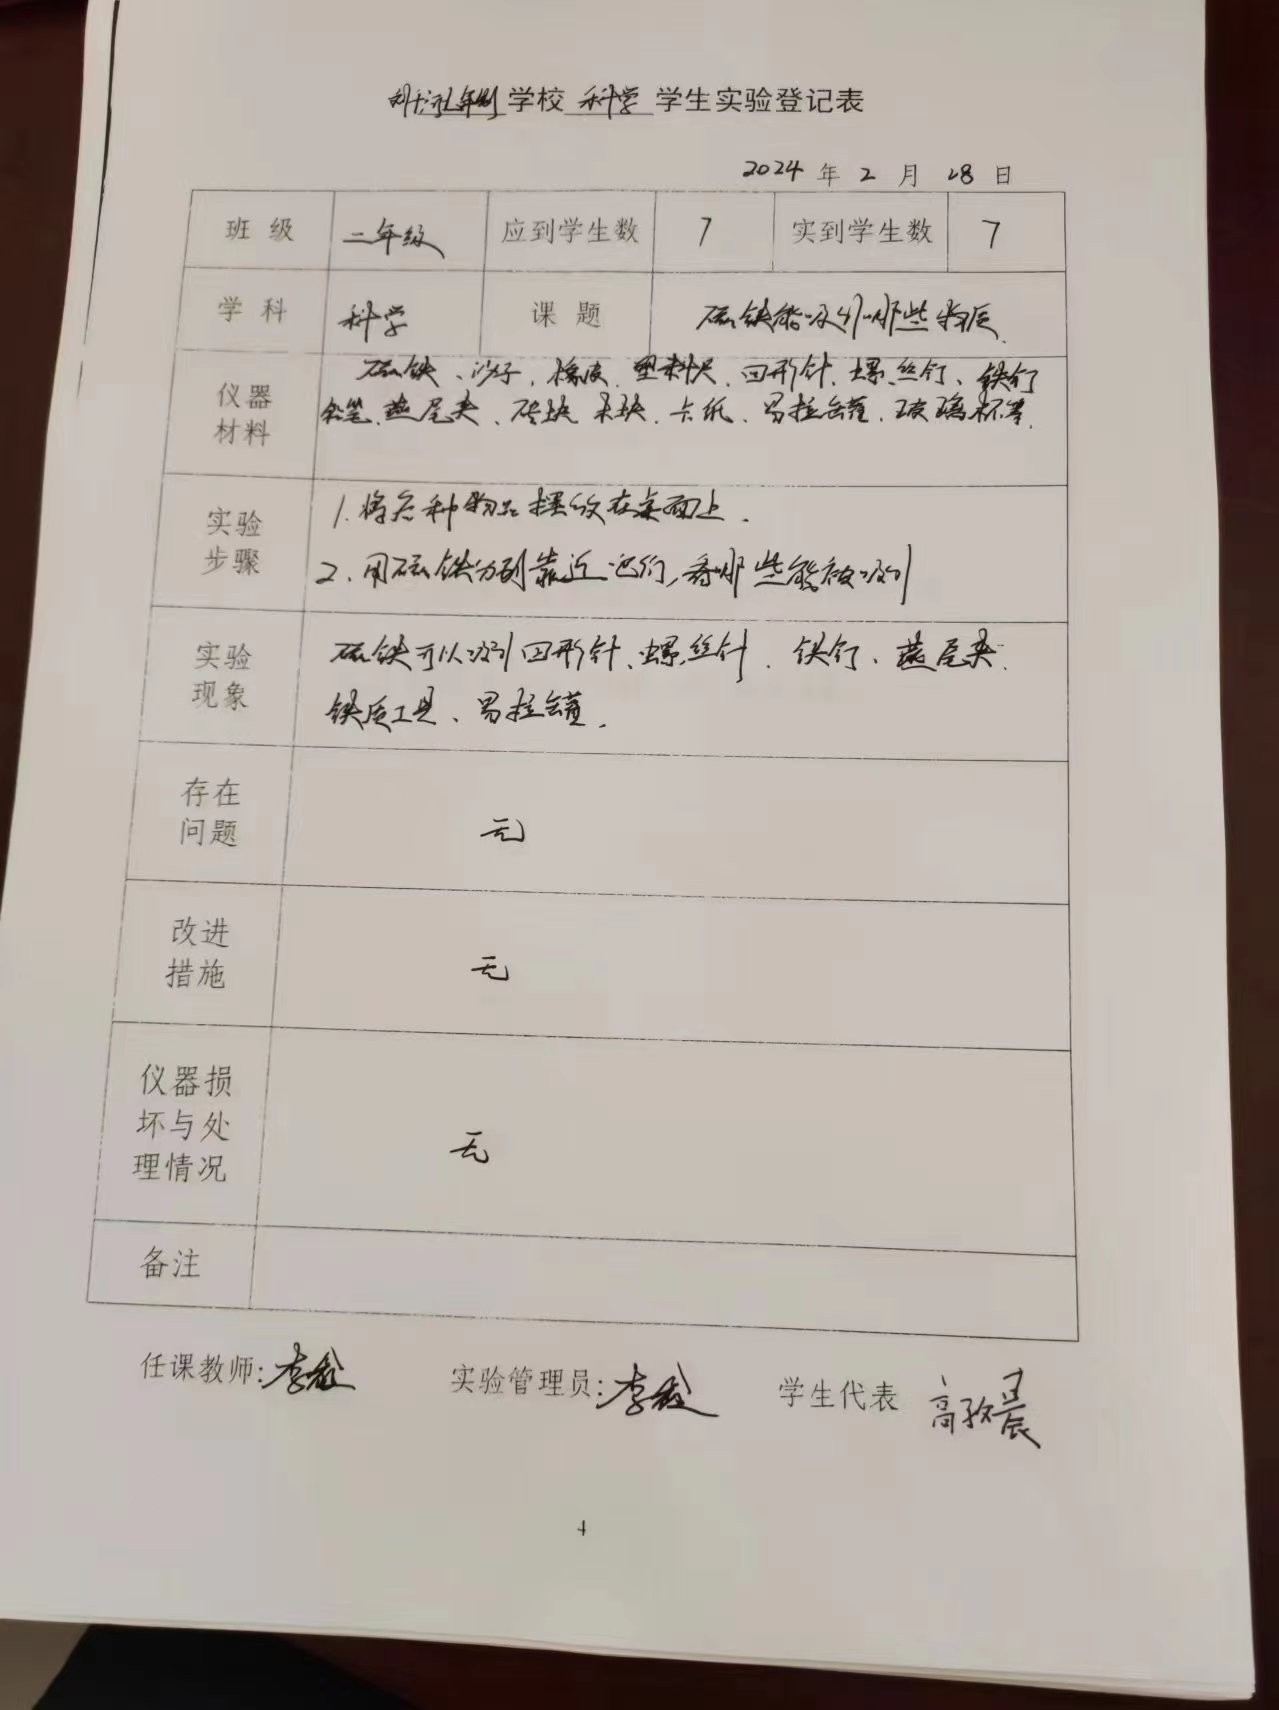 学校 科学 学生实验登记表
2024 年 2 月 28 日
班级 二年级 应到学生数 7 实到学生数 7
学科 科学 课题 磁铁能吸引哪些物质
仪器材料
磁铁、沙子、橡皮、塑料尺、回形针、螺丝钉、铁钉
铅笔、燕尾夹、砖块、木块、卡纸、易拉罐、玻璃杯等.
实验步骤
1.将各种物品摆放在桌面上.
2、用磁铁分别靠近它们,看哪些能被吸引
实验现象
磁铁可以吸引回形针、螺丝针、铁钉、燕尾夹、
铁质工具、易拉罐.
存在问题
无
改进措施
无
仪器损坏与处理情况
无
备注
任课教师: 李 实验管理员: 李 学生代表 高
4